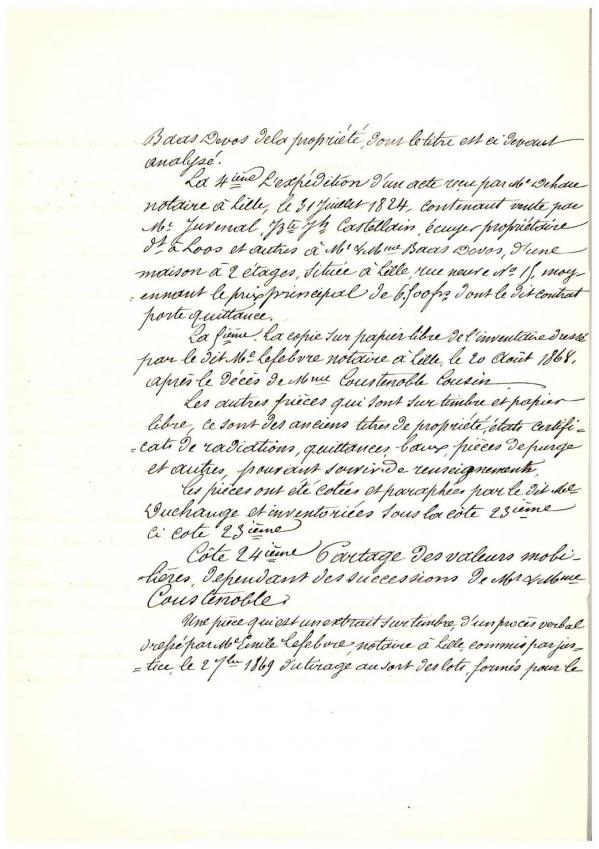 Baas Devos de la propriété, dont le titre est ci devant
analysé.
La 4ième L'expédition d'un acte recu par Me Dehau
notaire à Lille, le 31 Juillet 1824, contenant vente par
Mr Juvenal, Jbte Jh Castellain, écuyer propriétaire
dt à Loos et autres à Mr & Mme Baas Devos, d'une
maison à 2 étages, située à Lille, rue neuve No 15, moy-
-ennant le prix principal de 6500frs dont le dit contrat
porte quittance.
La 5ième. La copie sur papier libre de l'inventaire dressé
par le dit Me Lefebvre notaire à Lille, le 20 Août 1868,
après le décès de Mme Coustenoble Cousin.
Les autres pièces qui sont sur timbre et papier
libre, ce sont des anciens titres de propriété, états certifi-
-cats de radiations, quittances, baux, pièces de purge
et autres, pouvant servir de renseignements,
les pièces ont été cotées et paraphées par le dit Me
Duchange et inventoriées sous la côte 23ième
ci cote 23ième
Côte 24ième Partage des valeurs mobi-
-lières, dépendant des successions de Mr & Mme
Coustenoble.
Une pièce qui est un extrait sur timbre, d'un procès verbal
dressé par Me Emile Lefebvre, notaire à Lille, commis par jus-
-tice, le 2 7bre 1869 du tirage au sort des lots, formés pour le